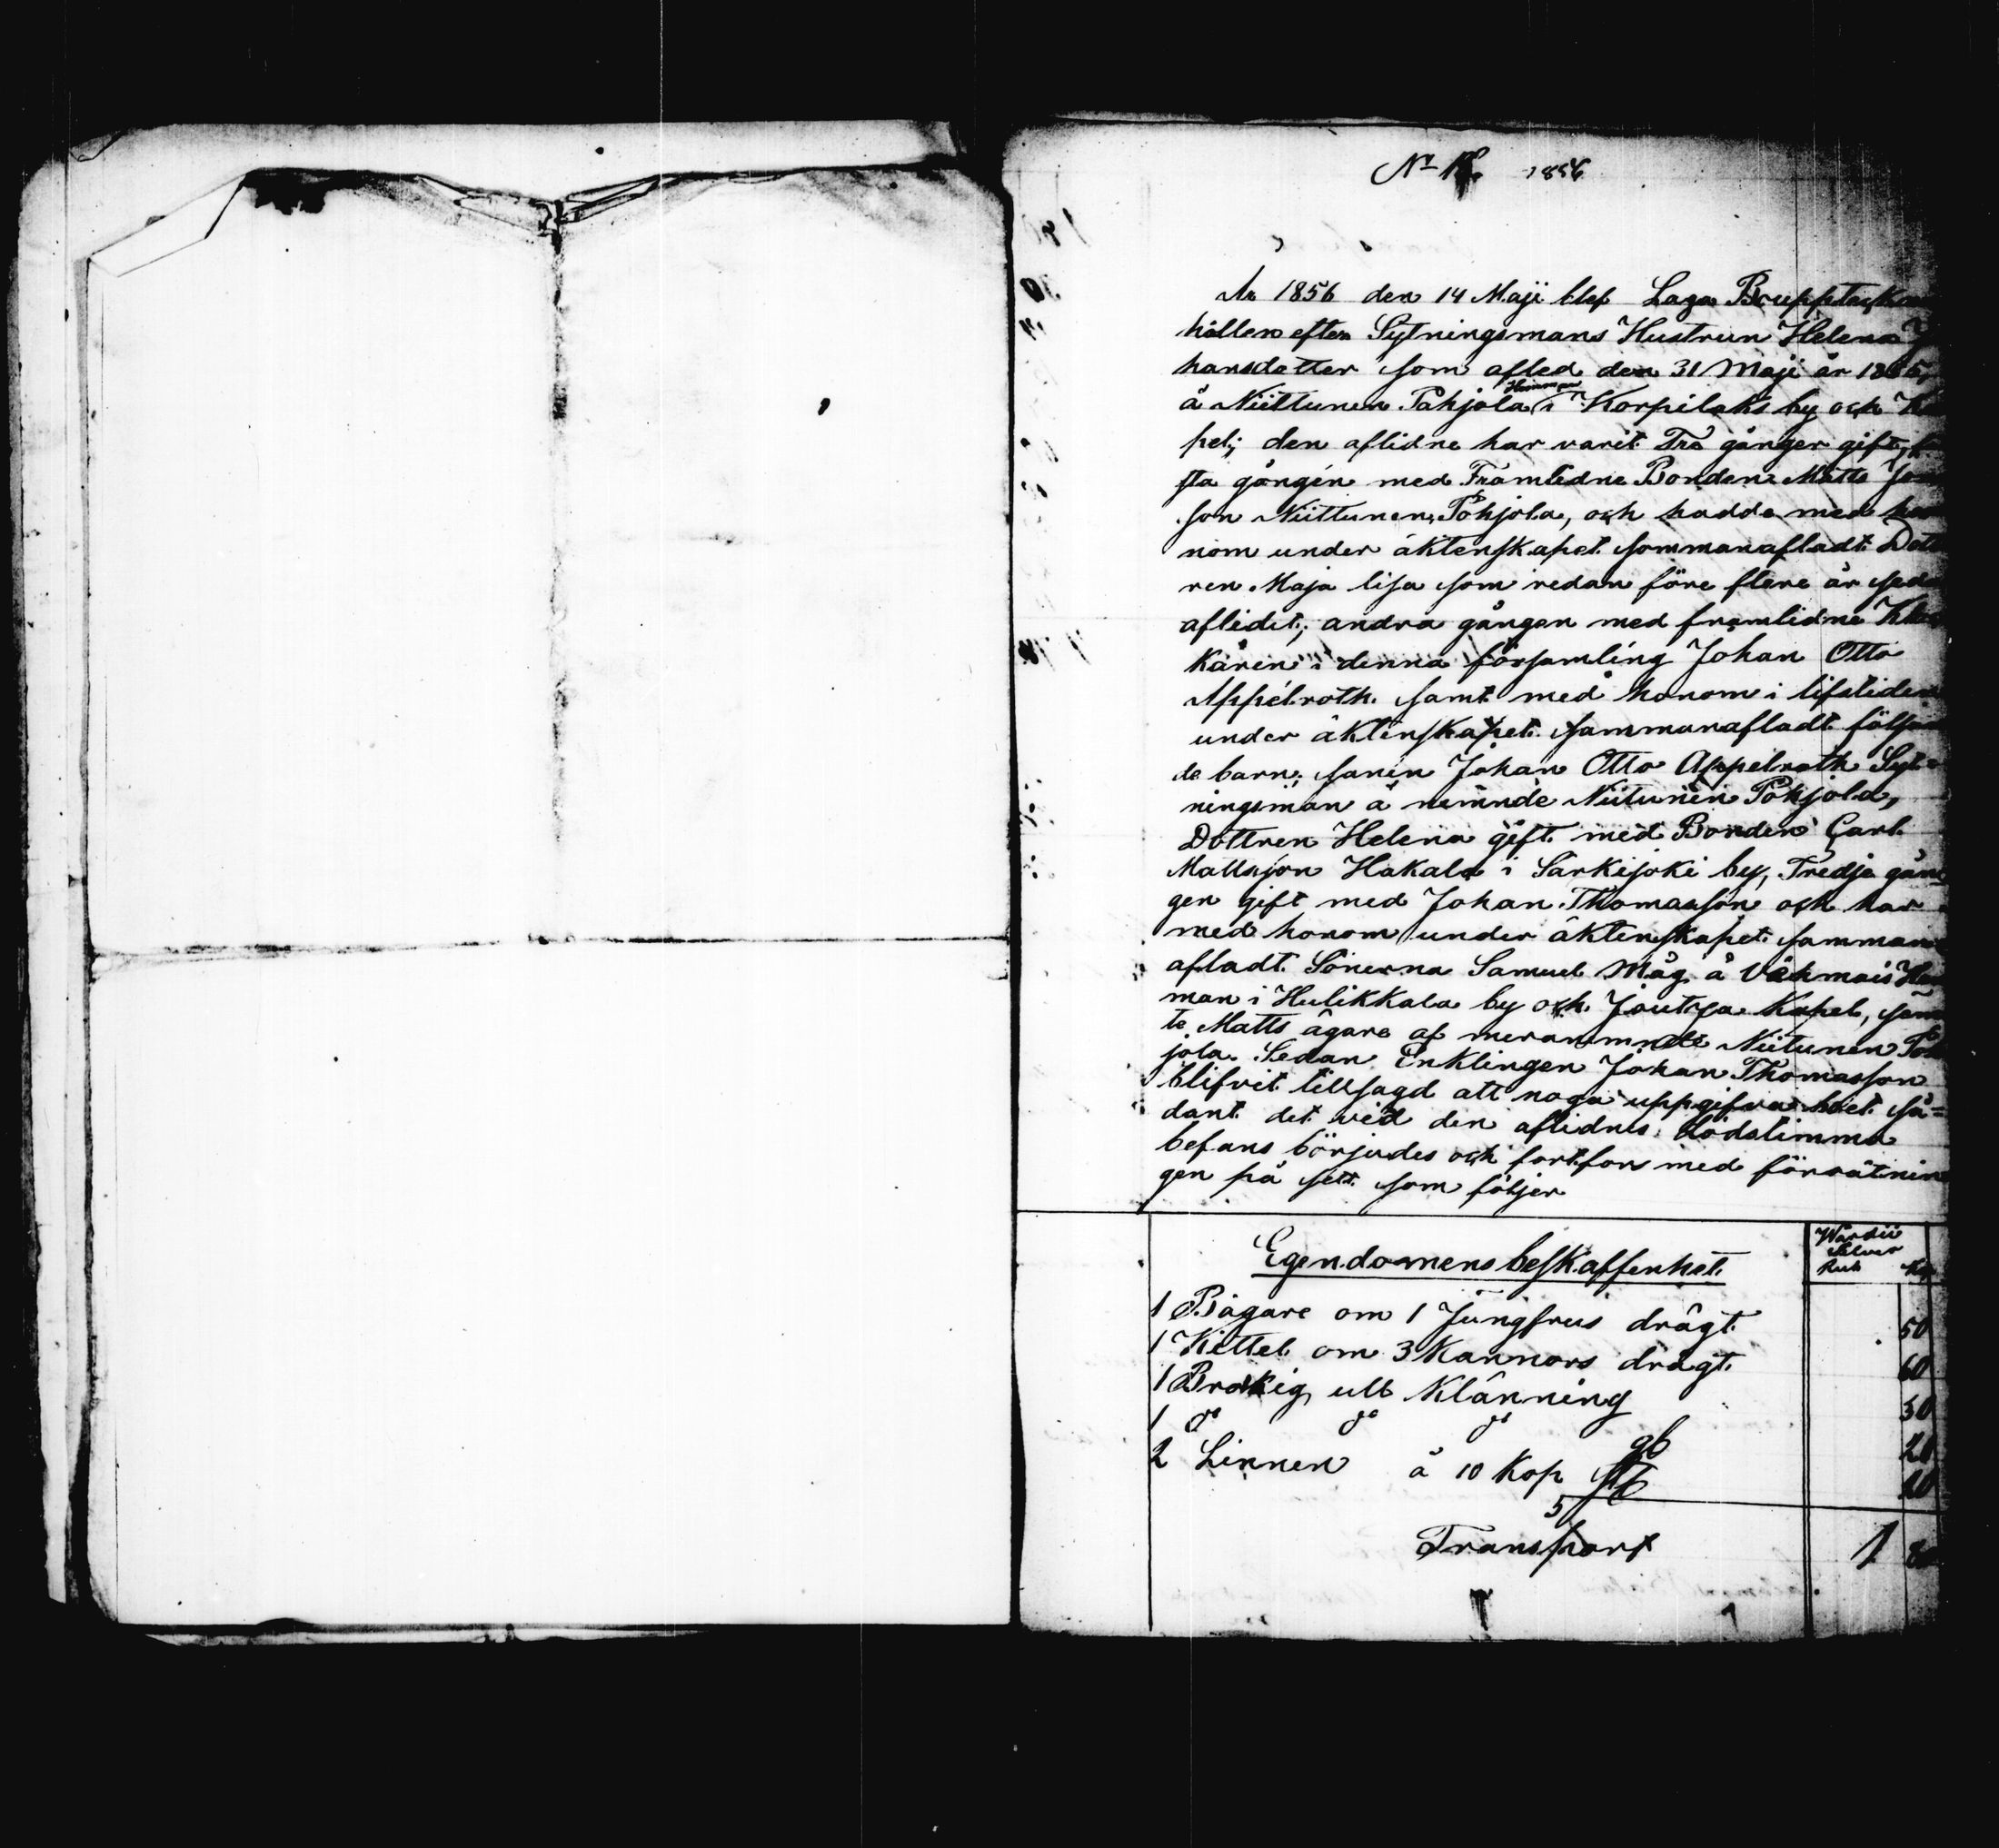 1856
År 1856 den 14 Maji blef Laga
hållen efter Sytningsmans Hustrun Helena
hansdotter som afled den 31 Maji år 1855,
å Niittunen Pohjola Hemman i Korpilaks by och
pel; den aflidne har varit Tre gånger gift,
sta gången med Framledne Bonden Matts
son Niittunen Pohjola, och hadde med
nom under äktenskapet sammanafladt
ren Maja lisa som redan före flere år
aflidit; andra gången med framlidne
kären i denna församling Johan Otto
Appelroth samt med honom i lifstiden
under äktenskapet sammanafladt
de barn; sonen Johan Otto Appelroth Syt=
ningsman å nemnde Niitunen Pohjola,
Dottren Helena gift med Bonden Carl
Mattsson Hakala i Särkijoki by, Tredje gån=
gen gift med Johan Thomasson och har
med honom under äktenskapet samman
afladt Sönerna Samuel Måg å Vehmais
man i Hulikkala by och Joutsa Kapel,
te Matts ägare af Niitunen
jola. Sedan Enklingen Johan Thomasson
blifvit tillsagd att noga uppgifva boet så=
dant det vid den aflidnes dödstimma
befans börjades och fortfors med
gen på sett som följer
Egendomens beskaffenhet Wärdii Silver Rub
1 Bägare om 1 Jungfrus drägt 50
1 Kittel om 3 Kannors drägt 60
1 Brokig ull Klänning 30
1 do do do 20
2 Linnen å 10 Kop 20
Transport 1